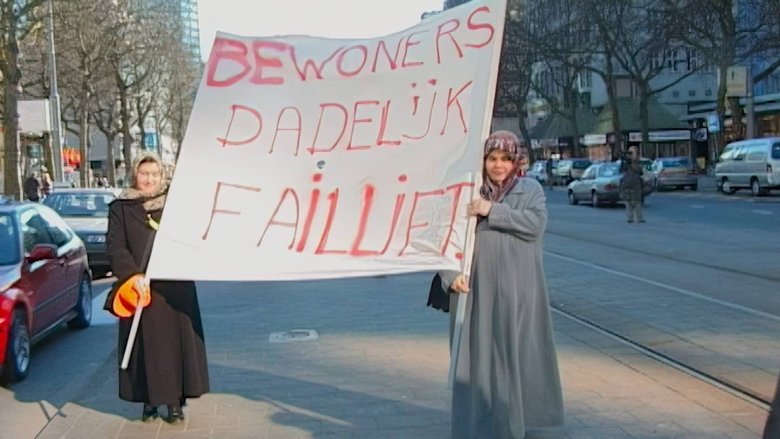 BEWONERS
DADELIJK
FAILLIET.